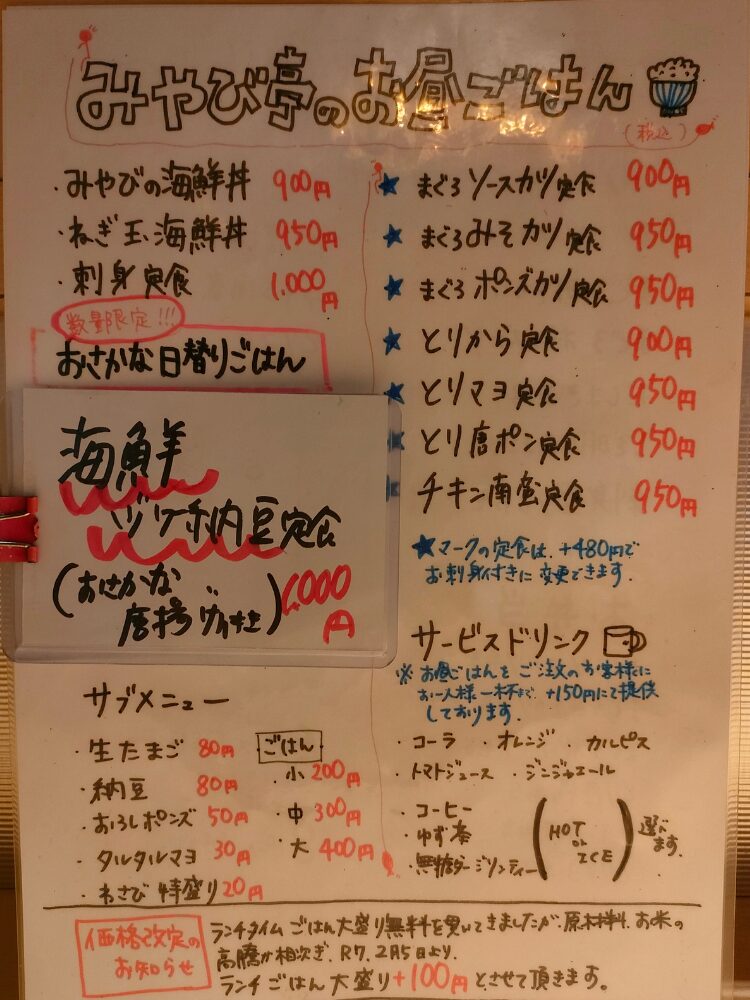 みやび亭のお昼ごはん
(税込)
・みやびの海鮮丼 900円
・ねぎ玉海鮮丼 950円
・刺身定食 1,000円
数量限定!!!
おさかな日替りごはん
海鮮
ヅケ納豆定食
(おさかな
唐揚げ付き)
1,000円
★ まぐろソースカツ定食 900円
★ まぐろみそカツ定食 950円
★ まぐろポンズカツ定食 950円
★ とりから定食 900円
★ とりマヨ定食 950円
★ とり唐ポン定食 950円
★ チキン南蛮定食 950円
★マークの定食は、+480円で
お刺身付きに変更できます.
サービスドリンク
※お昼ごはんをご注文のお客様に
お一人様一杯まで、+150円にて提供
しております.
・コーラ ・オレンジ ・カルピス
・トマトジュース ・ジンジャエール
・コーヒー
・ゆず茶
・無糖ダージリンティー
(HOT
or
ICE)
選べ
ます.
サブメニュー
・生たまご 80円
・納豆 80円
・おろしポンズ 50円
・タルタルマヨ 30円
・わさび特盛り 20円
ごはん
・小 200円
・中 300円
・大 400円
価格改定の
お知らせ
ランチタイムごはん大盛り無料を貫いてきましたが、原材料、お米の
高騰が相次ぎ、R7.2月5日より、
ランチごはん大盛り+100円とさせて頂きます。